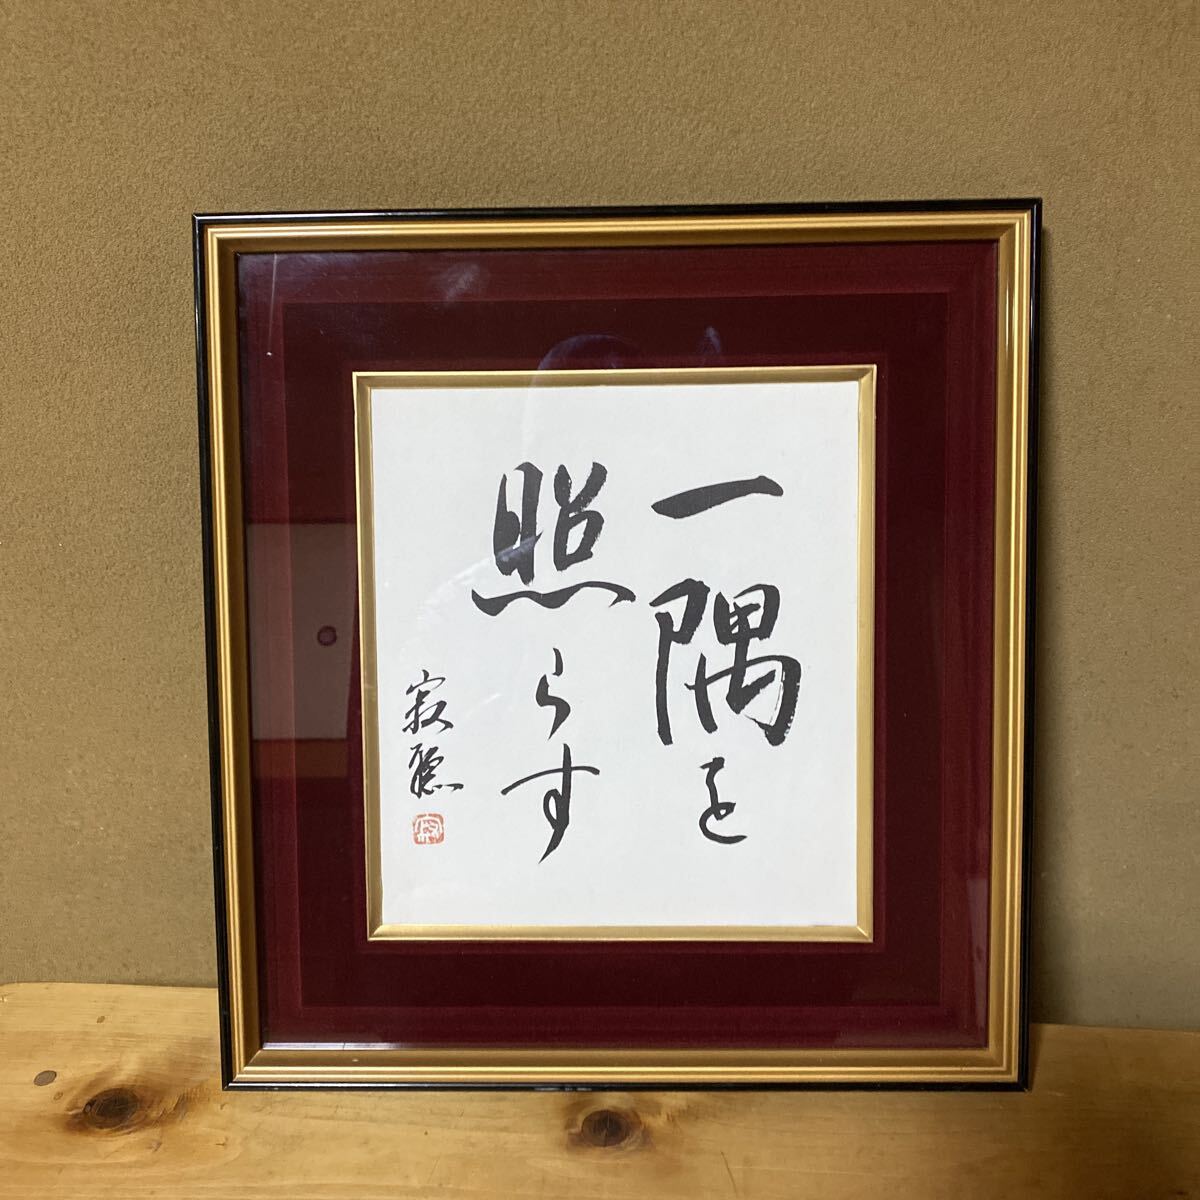 一隅を
照らす
寂聴
寂